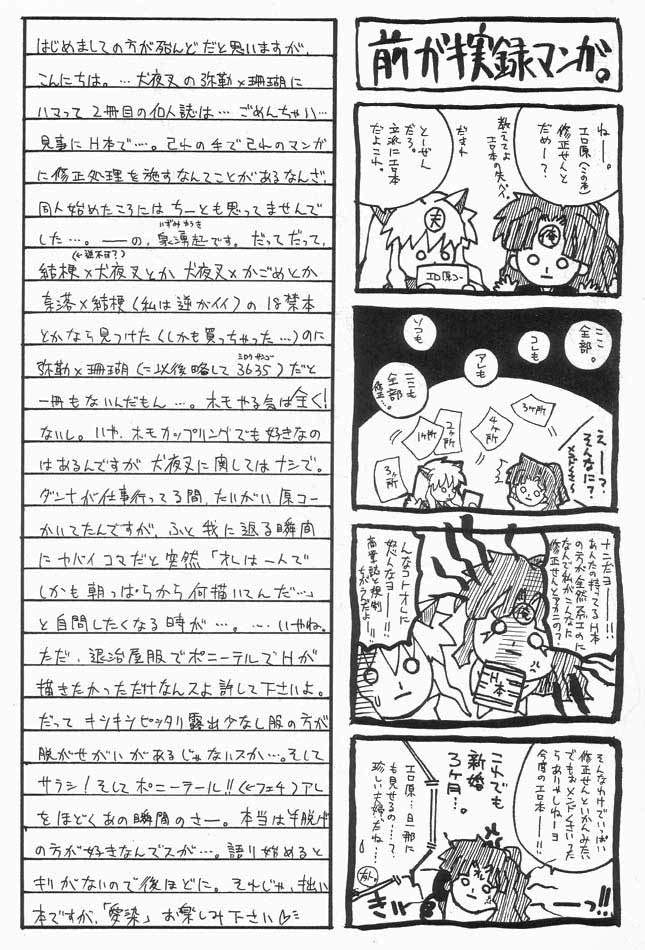 はじめましての方が殆んどだと思いますが、
こんにちは。…犬夜叉の弥勒×珊瑚に
ハマって2冊目の同人誌は…ごめんちゃい…
見事にH本で…。己れの手で己れのマンガ
に修正処理を施すなんてことがあるなんざ、
同人始めたころにはちーとも思ってませんで
した…。――の、です。だってだって、
(←逆不可?)
桔梗×犬夜叉とか犬夜叉×かごめとか
奈落×桔梗(私は逆がイイ)の18禁本
とかなら見つけた(しかも買っちゃった…)のに
弥勒×珊瑚(に以後略して3635)だと
ミロクサンゴ
一冊もないんだもん…。ホモやる気は全く!
ないし。いや、ホモカップリングでも好きなの
はあるんですが犬夜叉に関してはナシで。
ダンナが仕事行ってる間、たいがい原コー
かいてたんですが、ふと我に返る瞬間
にヤバイコマだと突然「オレは一人で
しかも朝っぱらから何描いてんだ…」
と自問したくなる時が…。…いやね。
ただ、退治屋服でポニーテルでHが
描きたかっただけなんスよ許して下さいよ。
だってキシキシピッタリ露出少なし服の方が
脱がせがいがあるじゃないスか…。そして
サラシ!そしてポニーテール!!(←フェチ)アレ
をほどくあの瞬間のさー。本当は半脱げ
の方が好きなんでスが…。語り始めると
キリがないので後ほどに。それじゃ、拙い
本ですが、「愛染」お楽しみ下さい
前がき実録マンガ。
ねー。
エロ原(この本)
修正せんと
だめー?
教えてよ
エロ本の先パイ。
だまれ
とーぜん
だろ。
立派にエロ本
だよこれ。
俺
夫
エロ原コー
ここ
全部。
コレも
アレも
ソコも
ここも
全部…
修正…。
3ヶ所
4ヶ所
2ヶ所
1ヶ所
3ヶ所
えーっ?
そんなに?
ナニだヨーー!!
あんたの持ってるH本
の方が全然エロのに
なんで私がこんなに
修正せんとアカンの?
俺
H本
んなコトオレに
怒んなヨーー!!
商業誌と規制
ちがうんだよー
そんなわけでいっぱい
修正せんといかんみたい
でもおメンドくさいったら
ありゃしねーヨ
今度のエロ本ーー!!
これでも
新婚
3ヶ月…。
エロ原…旦那に
も見せるの…?
珍しい夫婦だね…
友人
オレ
ーっ!!